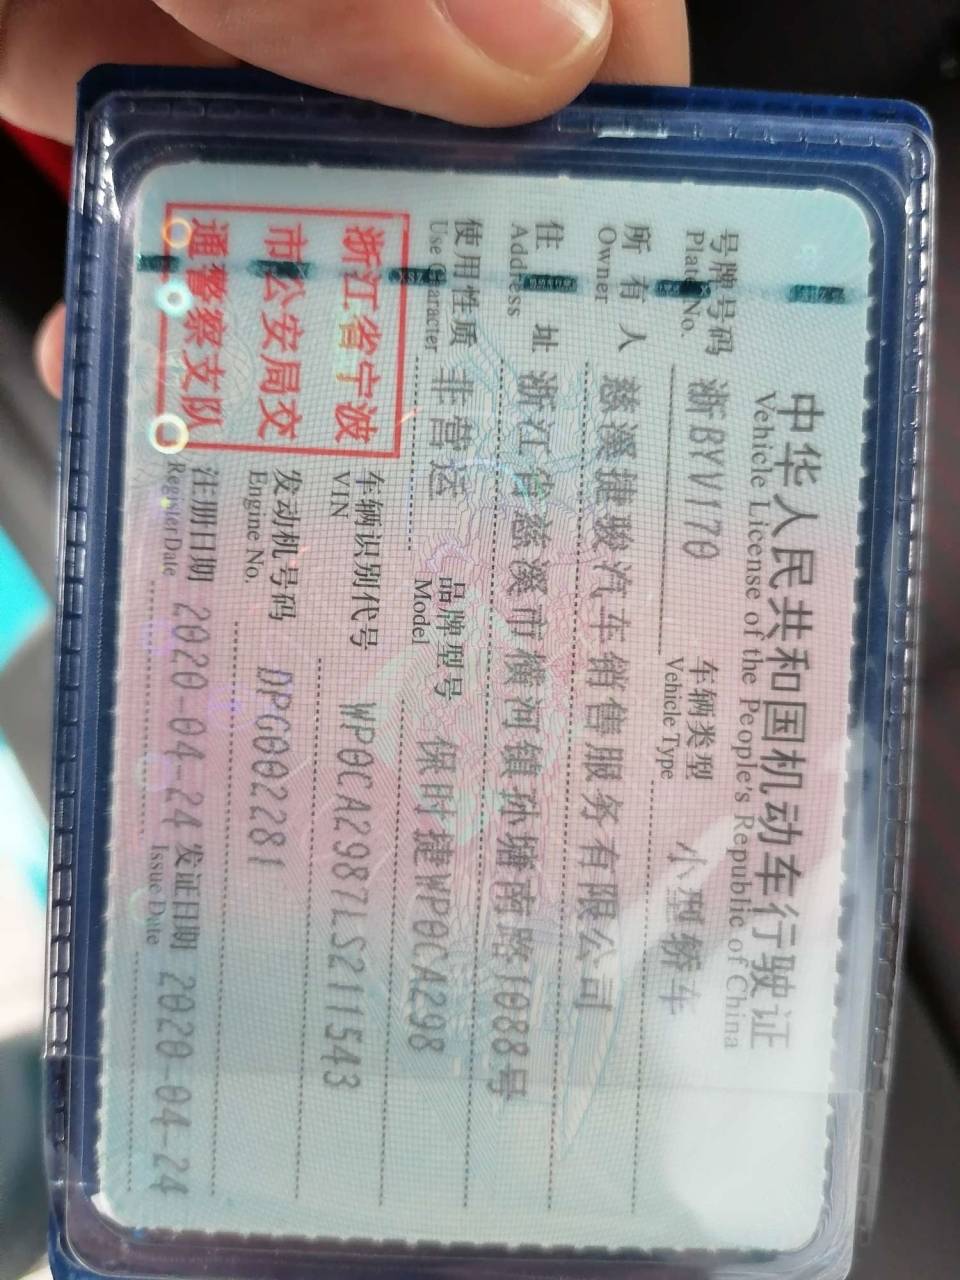 中华人民共和国机动车行驶证
Vehicle License of the People's Republic of China
号牌号码 浙BYV170 车辆类型 小型轿车
Plate No. Vehicle Type
所有人 慈溪捷骏汽车销售服务有限公司
Owner
住址 浙江省慈溪市横河镇孙塘南路1088号
Address
使用性质 非营运 品牌型号 保时捷WP0CA298
Use Character Model
浙江省宁波
市公安局交
通警察支队
车辆识别代号 WP0CA2987LS211543
VIN
发动机号码 DPC002281
Engine No.
注册日期 2020-04-24 发证日期 2020-04-24
Register Date Issue Date